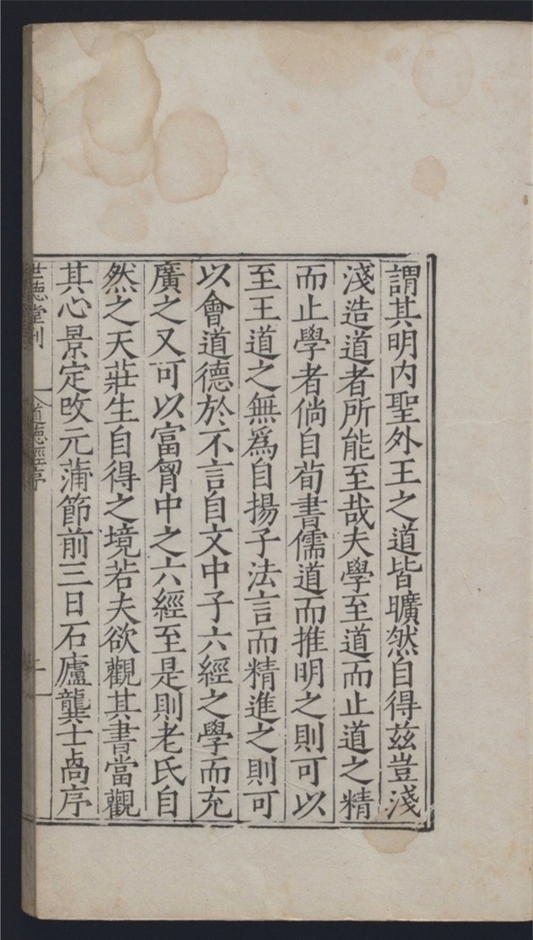 謂其明內聖外王之道皆曠然自得兹豈淺
淺造道者所能至哉夫學至道而止道之精
而止學者倘自荀書儒道而推明之則可以
至王道之無爲自揚子法言而精進之則可
以會道德於不言自文中子六經之學而充
廣之又可以富胷中之六經至是則老氏自
然之天莊生自得之境若夫欲觀其書當觀
其心景定攺元蒲節前三日石廬龔士卨序
世德堂刊 道德經序